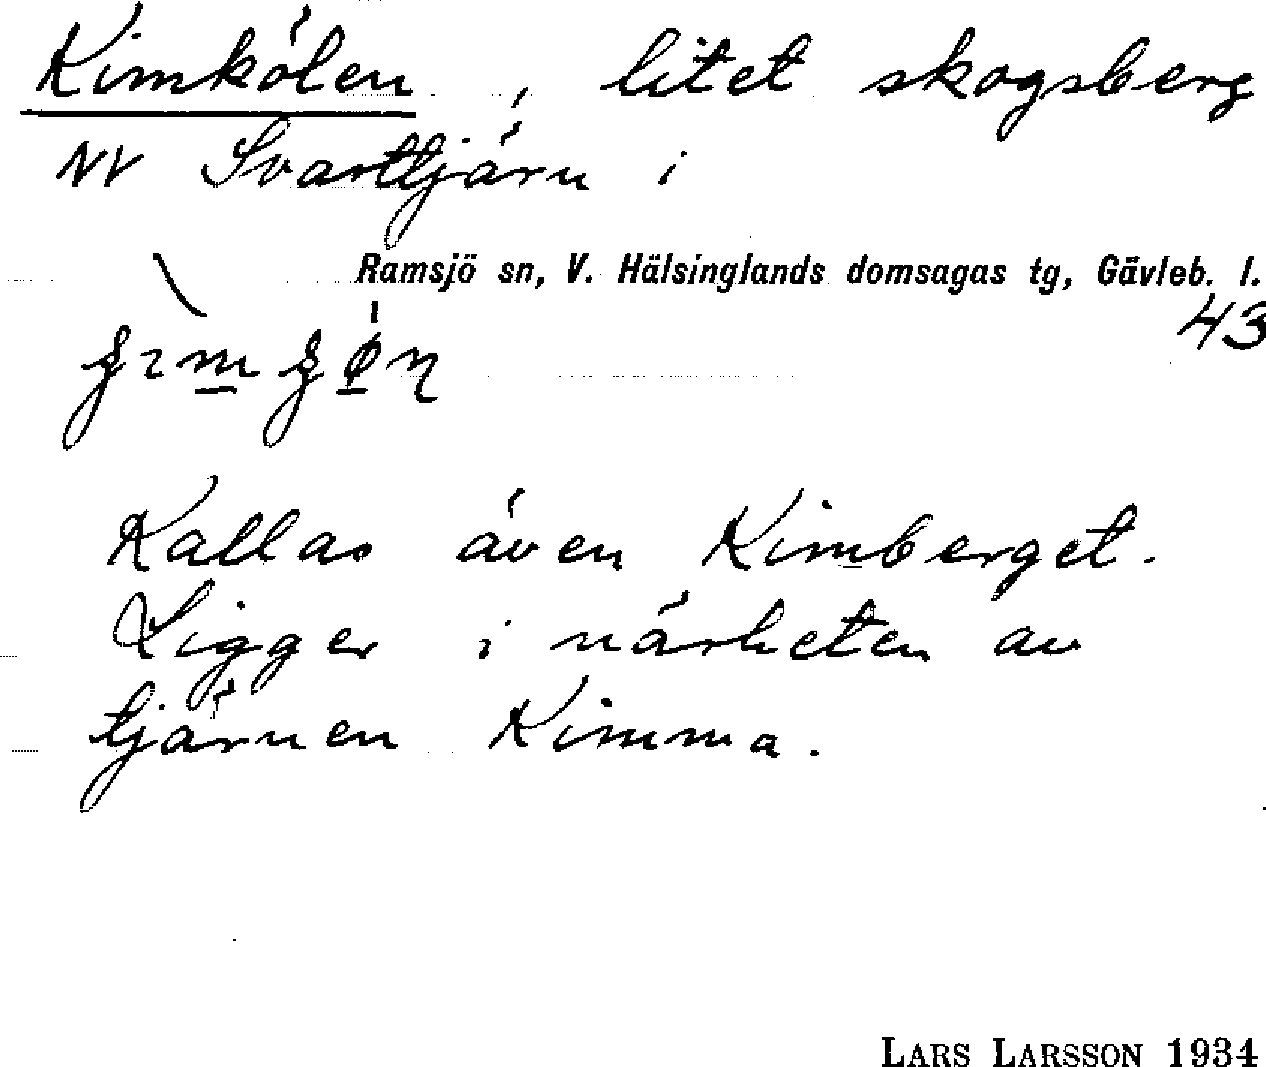 Kimkölen, litet skogsberg
NV Svarttjärn i
Ramsjö sn, V. Hälsinglands domsagas tg, Gävleb. l.
43
Kallas även Kimberget.
Ligger i närheten av
tjärnen Kimma.
LARS LARSSON 1934